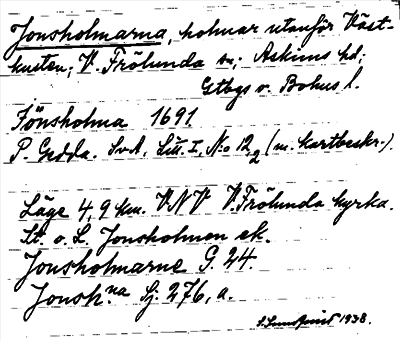 Jonsholmarna, holmar utanför Väst-
kusten, V. Frölunda sn; Askims hd;
Gtbgs o. Bohus l.
Jönsholma 1691
P. Gedda. SvA, Litt. I, N:o 12,2 (m. kartbeskr.).
Läge 4,9 km. VNV V. Frölunda kyrka.
St. o. L. Jonsholmen ek.
Jonsholmarne G. 24.
Jonsh.na Sj. 276, a.
1938.